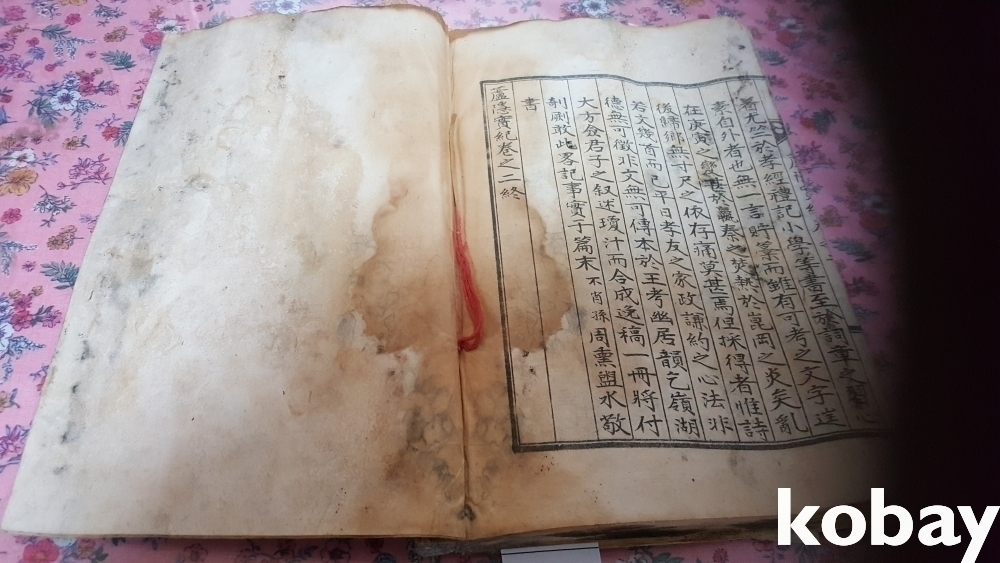 尤竺於孝經禮記小學等書至於詞章之
外者也無言時業而雖有可考之文字
在庚寅之變甚於嬴秦之焚熱於崑岡之炎矣亂
後歸鄉無寸尺之依存痛莫甚焉但採得者惟詩
若文幾首而已平日孝友之家政謙約之心法非
德無可徵非文無可傳本於王考幽居韻乞嶺湖
大方僉君子之叙述瓊汁而合成逸稿一冊將付
剞劂敢此畧記事實于篇末不肖孫周熏盥水敬
書
蘆隱實紀卷之二終
kobay